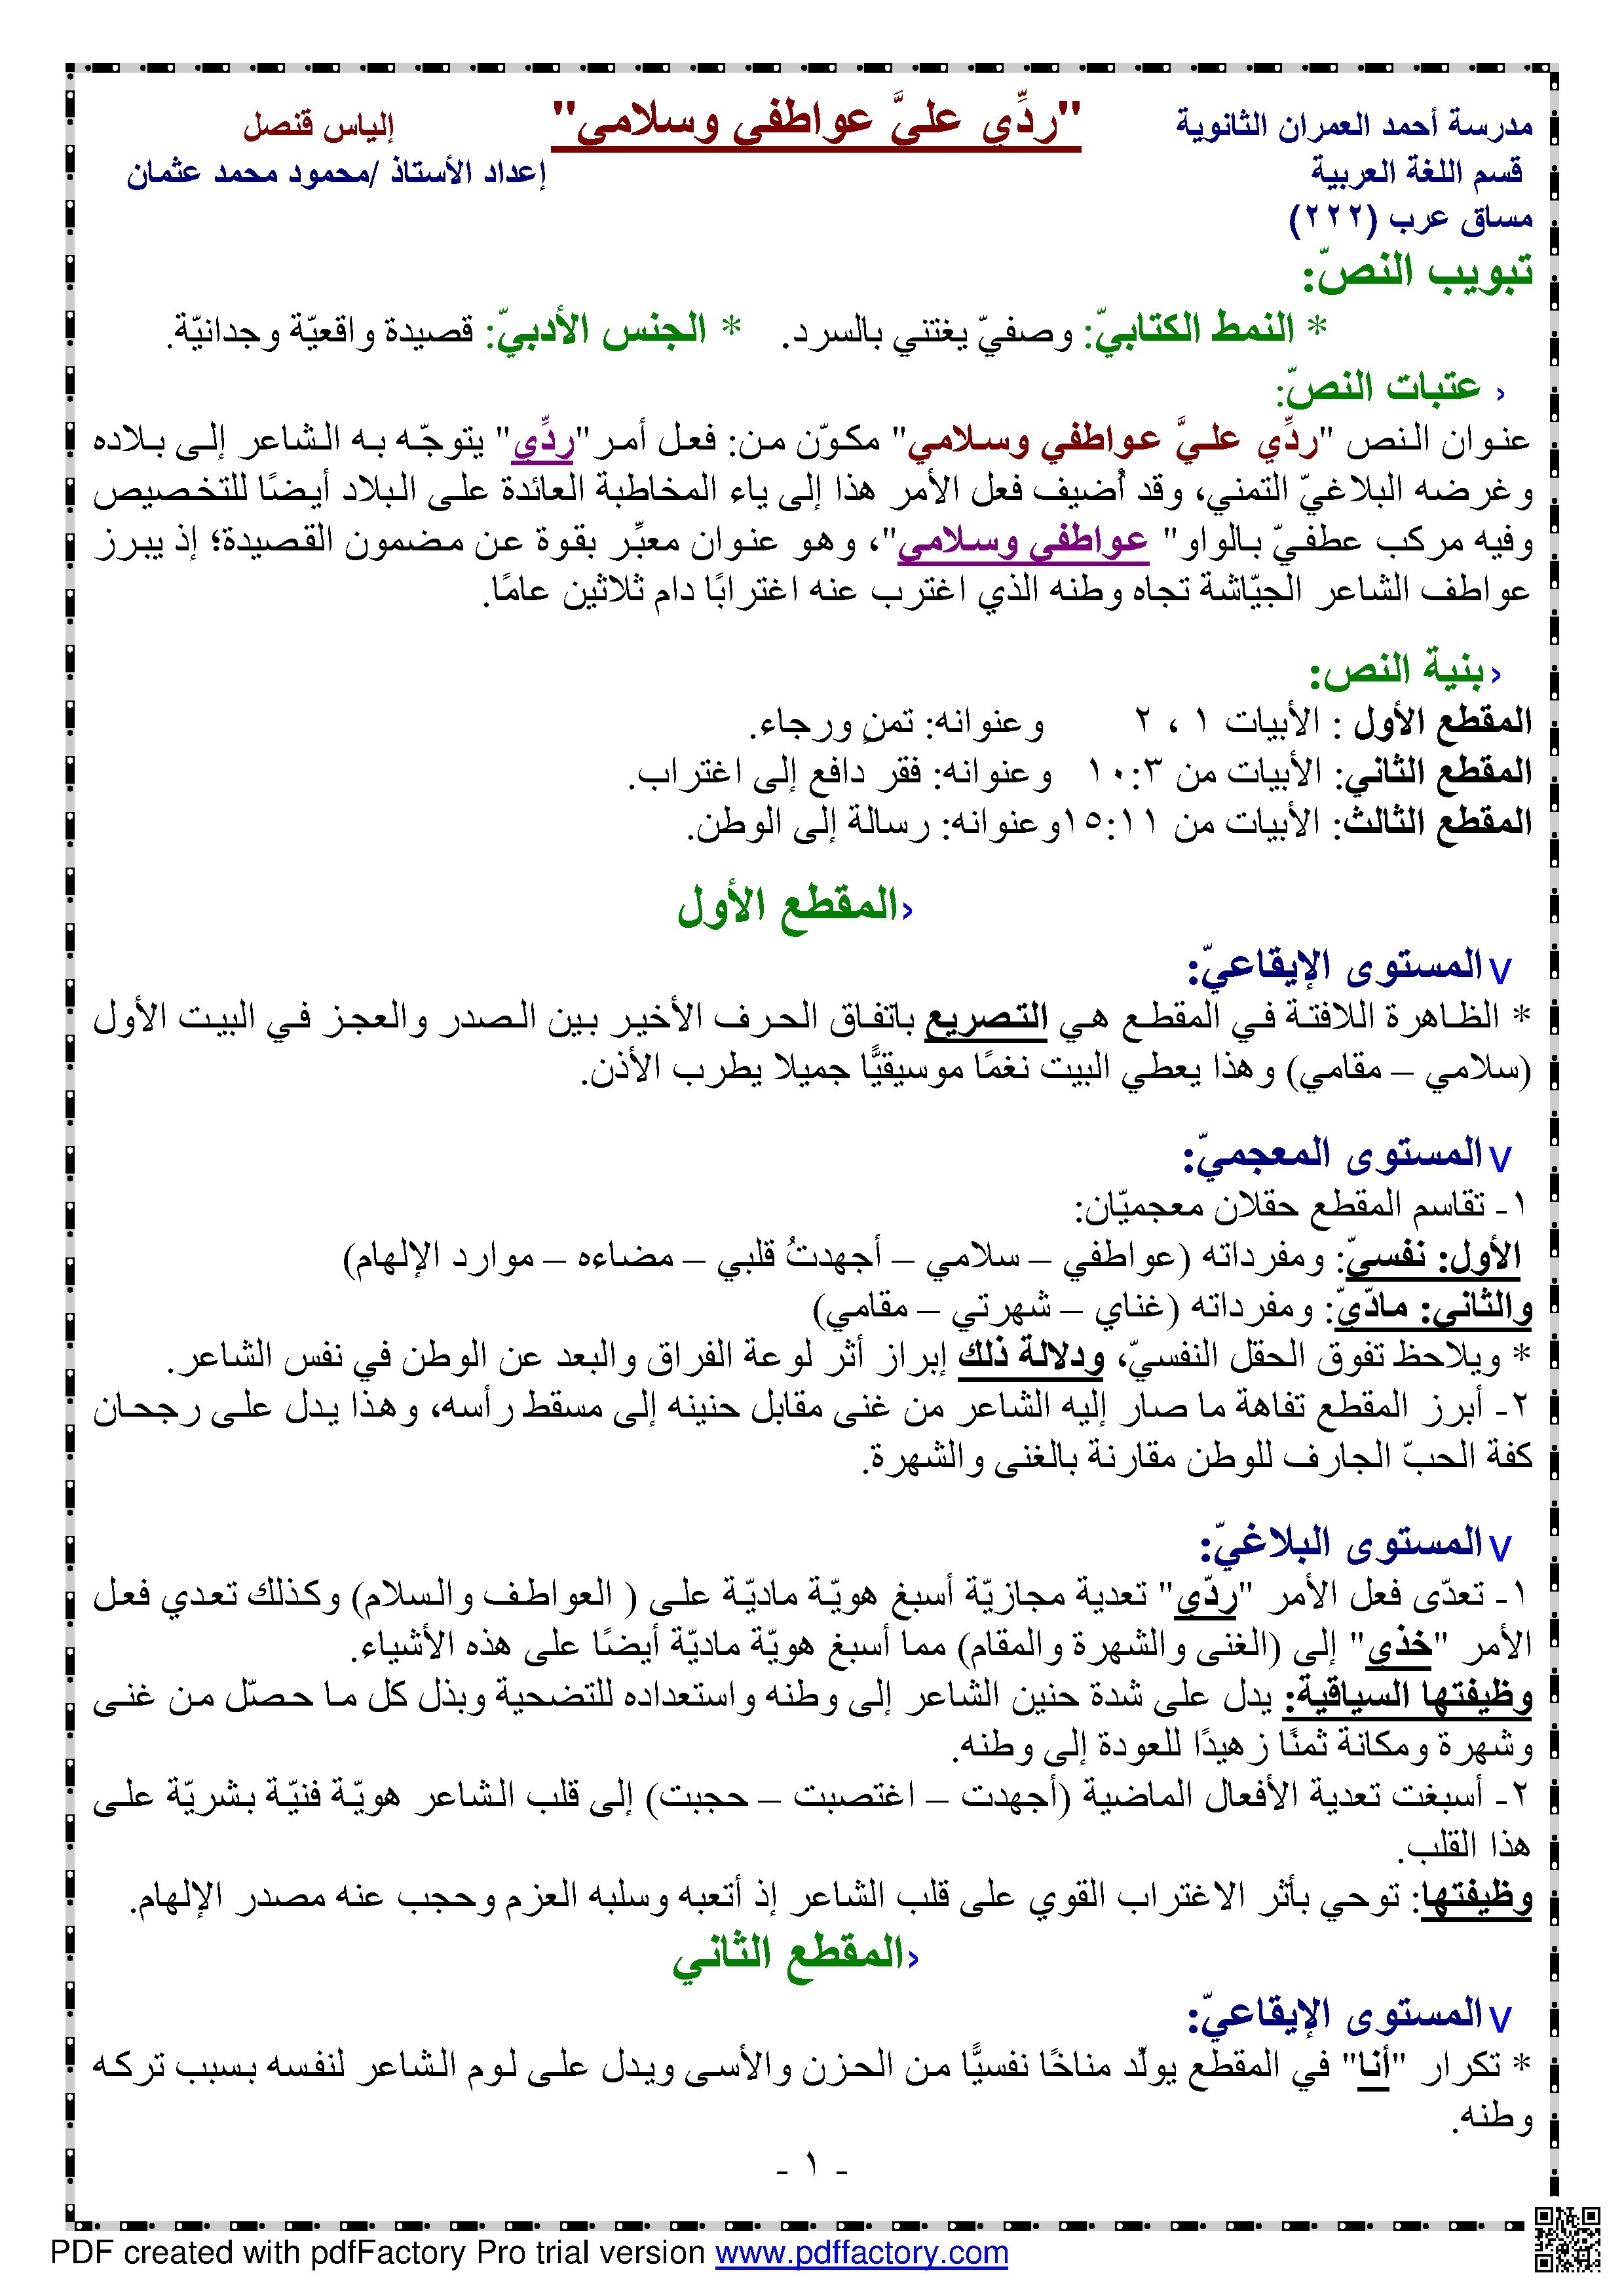 مدرسة أحمد العمران الثانوية "ردِّي عليَّ عواطفي وسلامي" إلياس قنصل
قسم اللغة العربية إعداد الأستاذ /محمود محمد عثمان
مساق عرب (٢٢٢)
تبويب النصّ:
* النمط الكتابيّ: وصفيّ يغتني بالسرد. * الجنس الأدبيّ: قصيدة واقعيّة وجدانيّة.
‹ عتبات النصّ:
عنوان النص "ردِّي عليَّ عواطفي وسلامي" مكوّن من: فعل أمر"ردِّي" يتوجّه به الشاعر إلى بلاده
وغرضه البلاغيّ التمني، وقد أُضيف فعل الأمر هذا إلى ياء المخاطبة العائدة على البلاد أيضًا للتخصيص
وفيه مركب عطفيّ بالواو" عواطفي وسلامي"، وهو عنوان معبِّر بقوة عن مضمون القصيدة؛ إذ يبرز
عواطف الشاعر الجيّاشة تجاه وطنه الذي اغترب عنه اغترابًا دام ثلاثين عامًا.
‹بنية النص:
المقطع الأول : الأبيات ١ ، ٢ وعنوانه: تمنٍ ورجاء.
المقطع الثاني: الأبيات من ١٠:٣ وعنوانه: فقر دافع إلى اغتراب.
المقطع الثالث: الأبيات من ١٥:١١وعنوانه: رسالة إلى الوطن.
‹المقطع الأول
vالمستوى الإيقاعيّ:
* الظاهرة اللافتة في المقطع هي التصريع باتفاق الحرف الأخير بين الصدر والعجز في البيت الأول
(سلامي – مقامي) وهذا يعطي البيت نغمًا موسيقيًّا جميلا يطرب الأذن.
vالمستوى المعجميّ:
١- تقاسم المقطع حقلان معجميّان:
الأول: نفسيّ: ومفرداته (عواطفي – سلامي – أجهدتُ قلبي – مضاءه – موارد الإلهام)
والثاني: مادّيّ: ومفرداته (غناي – شهرتي – مقامي)
* ويلاحظ تفوق الحقل النفسيّ، ودلالة ذلك إبراز أثر لوعة الفراق والبعد عن الوطن في نفس الشاعر.
٢- أبرز المقطع تفاهة ما صار إليه الشاعر من غنى مقابل حنينه إلى مسقط رأسه، وهذا يدل على رجحان
كفة الحبّ الجارف للوطن مقارنة بالغنى والشهرة.
vالمستوى البلاغيّ:
١- تعدّى فعل الأمر "ردّي" تعدية مجازيّة أسبغ هويّة ماديّة على ( العواطف والسلام) وكذلك تعدي فعل
الأمر "خذي" إلى (الغنى والشهرة والمقام) مما أسبغ هويّة ماديّة أيضًا على هذه الأشياء.
وظيفتها السياقية: يدل على شدة حنين الشاعر إلى وطنه واستعداده للتضحية وبذل كل ما حصّل من غنى
وشهرة ومكانة ثمنًا زهيدًا للعودة إلى وطنه.
٢- أسبغت تعدية الأفعال الماضية (أجهدت – اغتصبت – حجبت) إلى قلب الشاعر هويّة فنيّة بشريّة على
هذا القلب.
وظيفتها: توحي بأثر الاغتراب القوي على قلب الشاعر إذ أتعبه وسلبه العزم وحجب عنه مصدر الإلهام.
‹المقطع الثاني
vالمستوى الإيقاعيّ:
* تكرار "أنا" في المقطع يولّد مناخًا نفسيًّا من الحزن والأسى ويدل على لوم الشاعر لنفسه بسبب تركه
وطنه.
- ١ -
PDF created with pdfFactory Pro trial version www.pdffactory.com